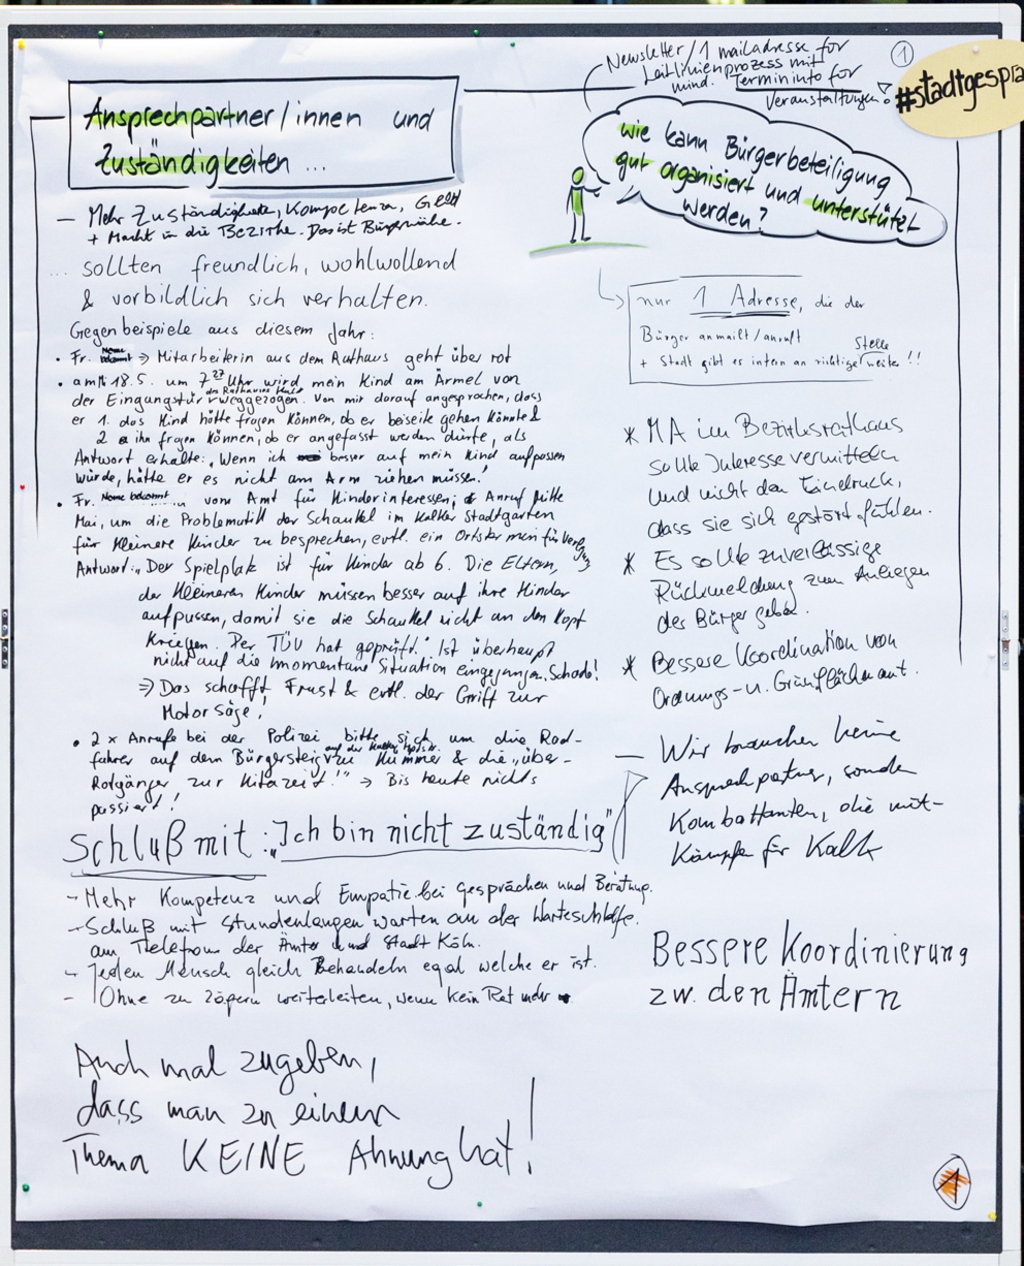 Newsletter / 1 mailadresse for
Leitlinienprozess mit
mind. Termininfo for
Veranstaltungen!
1
#stadtgesprä
Ansprechpartner/innen und
Zuständigkeiten ...
wie kann Bürgerbeteiligung
gut organisiert und unterstützt
werden?
– Mehr Zuständigkeiten, Kompetenzen, Geld
+ Macht in die Bezirke. Das ist Bürgernähe.
... sollten freundlich, wohlwollend
& vorbildlich sich verhalten.
Gegenbeispiele aus diesem Jahr:
• Fr. Name bekannt => Mitarbeiterin aus dem Rathaus geht über rot
• am 18.5. um 7 27 Uhr wird mein Kind am Ärmel von
der Eingangstür des Rathauses Kalk weggezogen. Von mir darauf angesprochen, dass
er 1. das Kind hätte fragen können, ob er beiseite gehen könnte &
2 ihn fragen können, ob er angefasst werden dürfe, als
Antwort erhalte: "Wenn ich besser auf mein Kind aufpassen
würde, hätte er es nicht am Arm ziehen müssen!"
• Fr. Name bekannt vom Amt für Kinderinteressen; Anruf Mitte
Mai, um die Problematik der Schaukel im Kalker Stadtgarten
für kleinere Kinder zu besprechen, evtl. ein Ortstermin
Antwort: "Der Spielplatz ist für Kinder ab 6. Die Eltern,
der kleineren Kinder müssen besser auf ihre Kinder
aufpassen, damit sie die Schaukel nicht an den Kopf
kriegen. Der TÜV hat geprüft." Ist überhaupt
nicht auf die momentane Situation eingegangen. Schade!
=> Das schafft Frust & evtl. der Griff zur
Motorsäge!
• 2 x Anrufe bei der Polizei bitte sich um die Rad-
fahrer auf dem Bürgersteig auf der Kalker Hptstr. zu kümmer & die "über-
Rotgänger zur Kitazeit!" → Bis heute nichts
passiert!
Schluß mit: "Ich bin nicht zuständig"
– Mehr Kompetenz und Empatie bei Gesprächen und Beratung.
– Schluß mit Stundenlangen warten an der Warteschleife.
am Telefon der Ämter und Stadt Köln.
– Jeden Mensch gleich Behandeln egal welche er ist.
– Ohne zu zögern weiterleiten, wenn kein Rat mehr
Auch mal zugeben,
dass man zu einem
Thema KEINE Ahnung hat!
nur 1 Adresse, die der
Bürger anmailt/anruft
+ Stadt gibt es intern an richtige Stelle weiter!!
* MA im Bezirksrathaus
sollte Interesse vermitteln
und nicht den Eindruck,
dass sie sich gestört fühlen.
* Es sollte zuverlässige
Rückmeldung zum Anliegen
der Bürger geben.
* Bessere Koordination von
Ordnungs- u. Grünflächenamt.
– Wir brauchen keine
Ansprechpartner, sondern
Kombattanten, die mit-
kämpfen für Kalk
Bessere Koordinierung
zw. den Ämtern
1